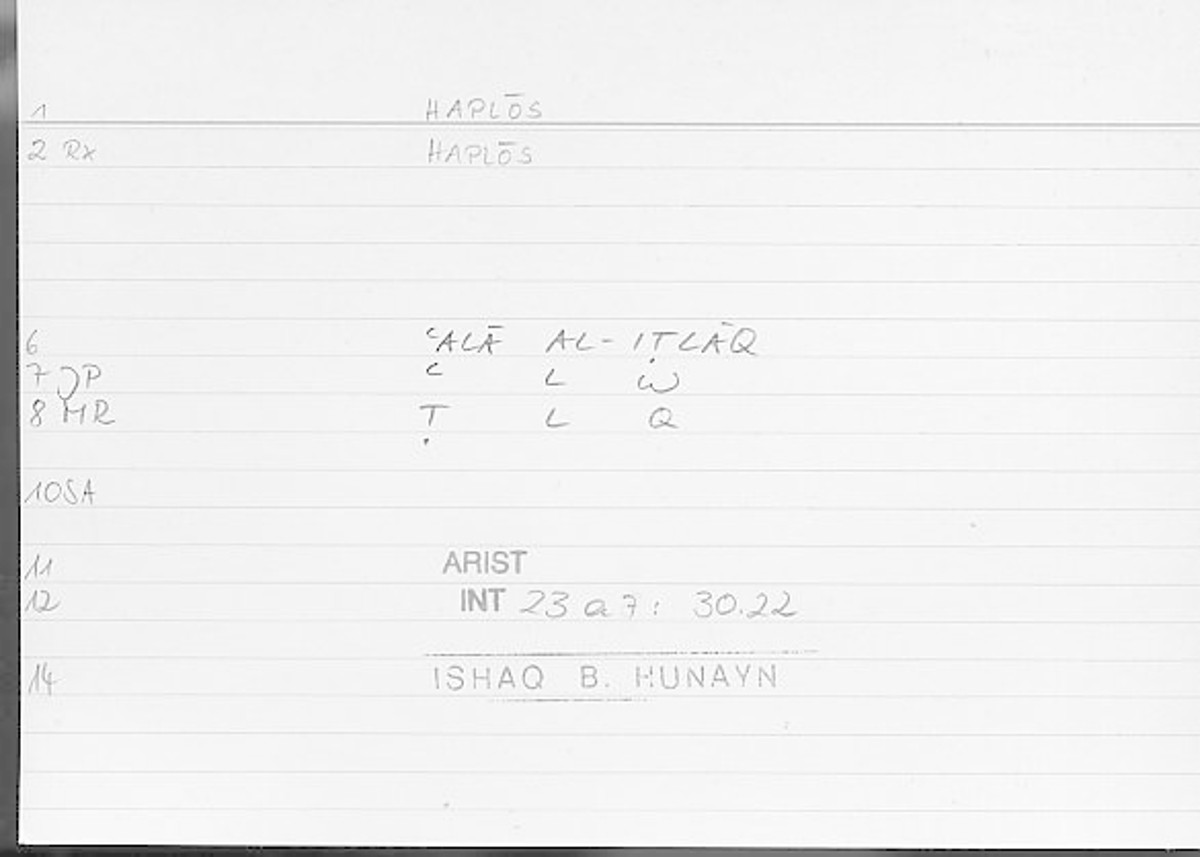 1 HAPLŌS
2 Rx HAPLŌS
6 ʿALĀ AL-IṬLĀQ
7 JP ʿ L W
8 MR Ṭ L Q
10SA
11 ARIST
12 INT 23 a 7: 30.22
14 ISHAQ B. HUNAYN